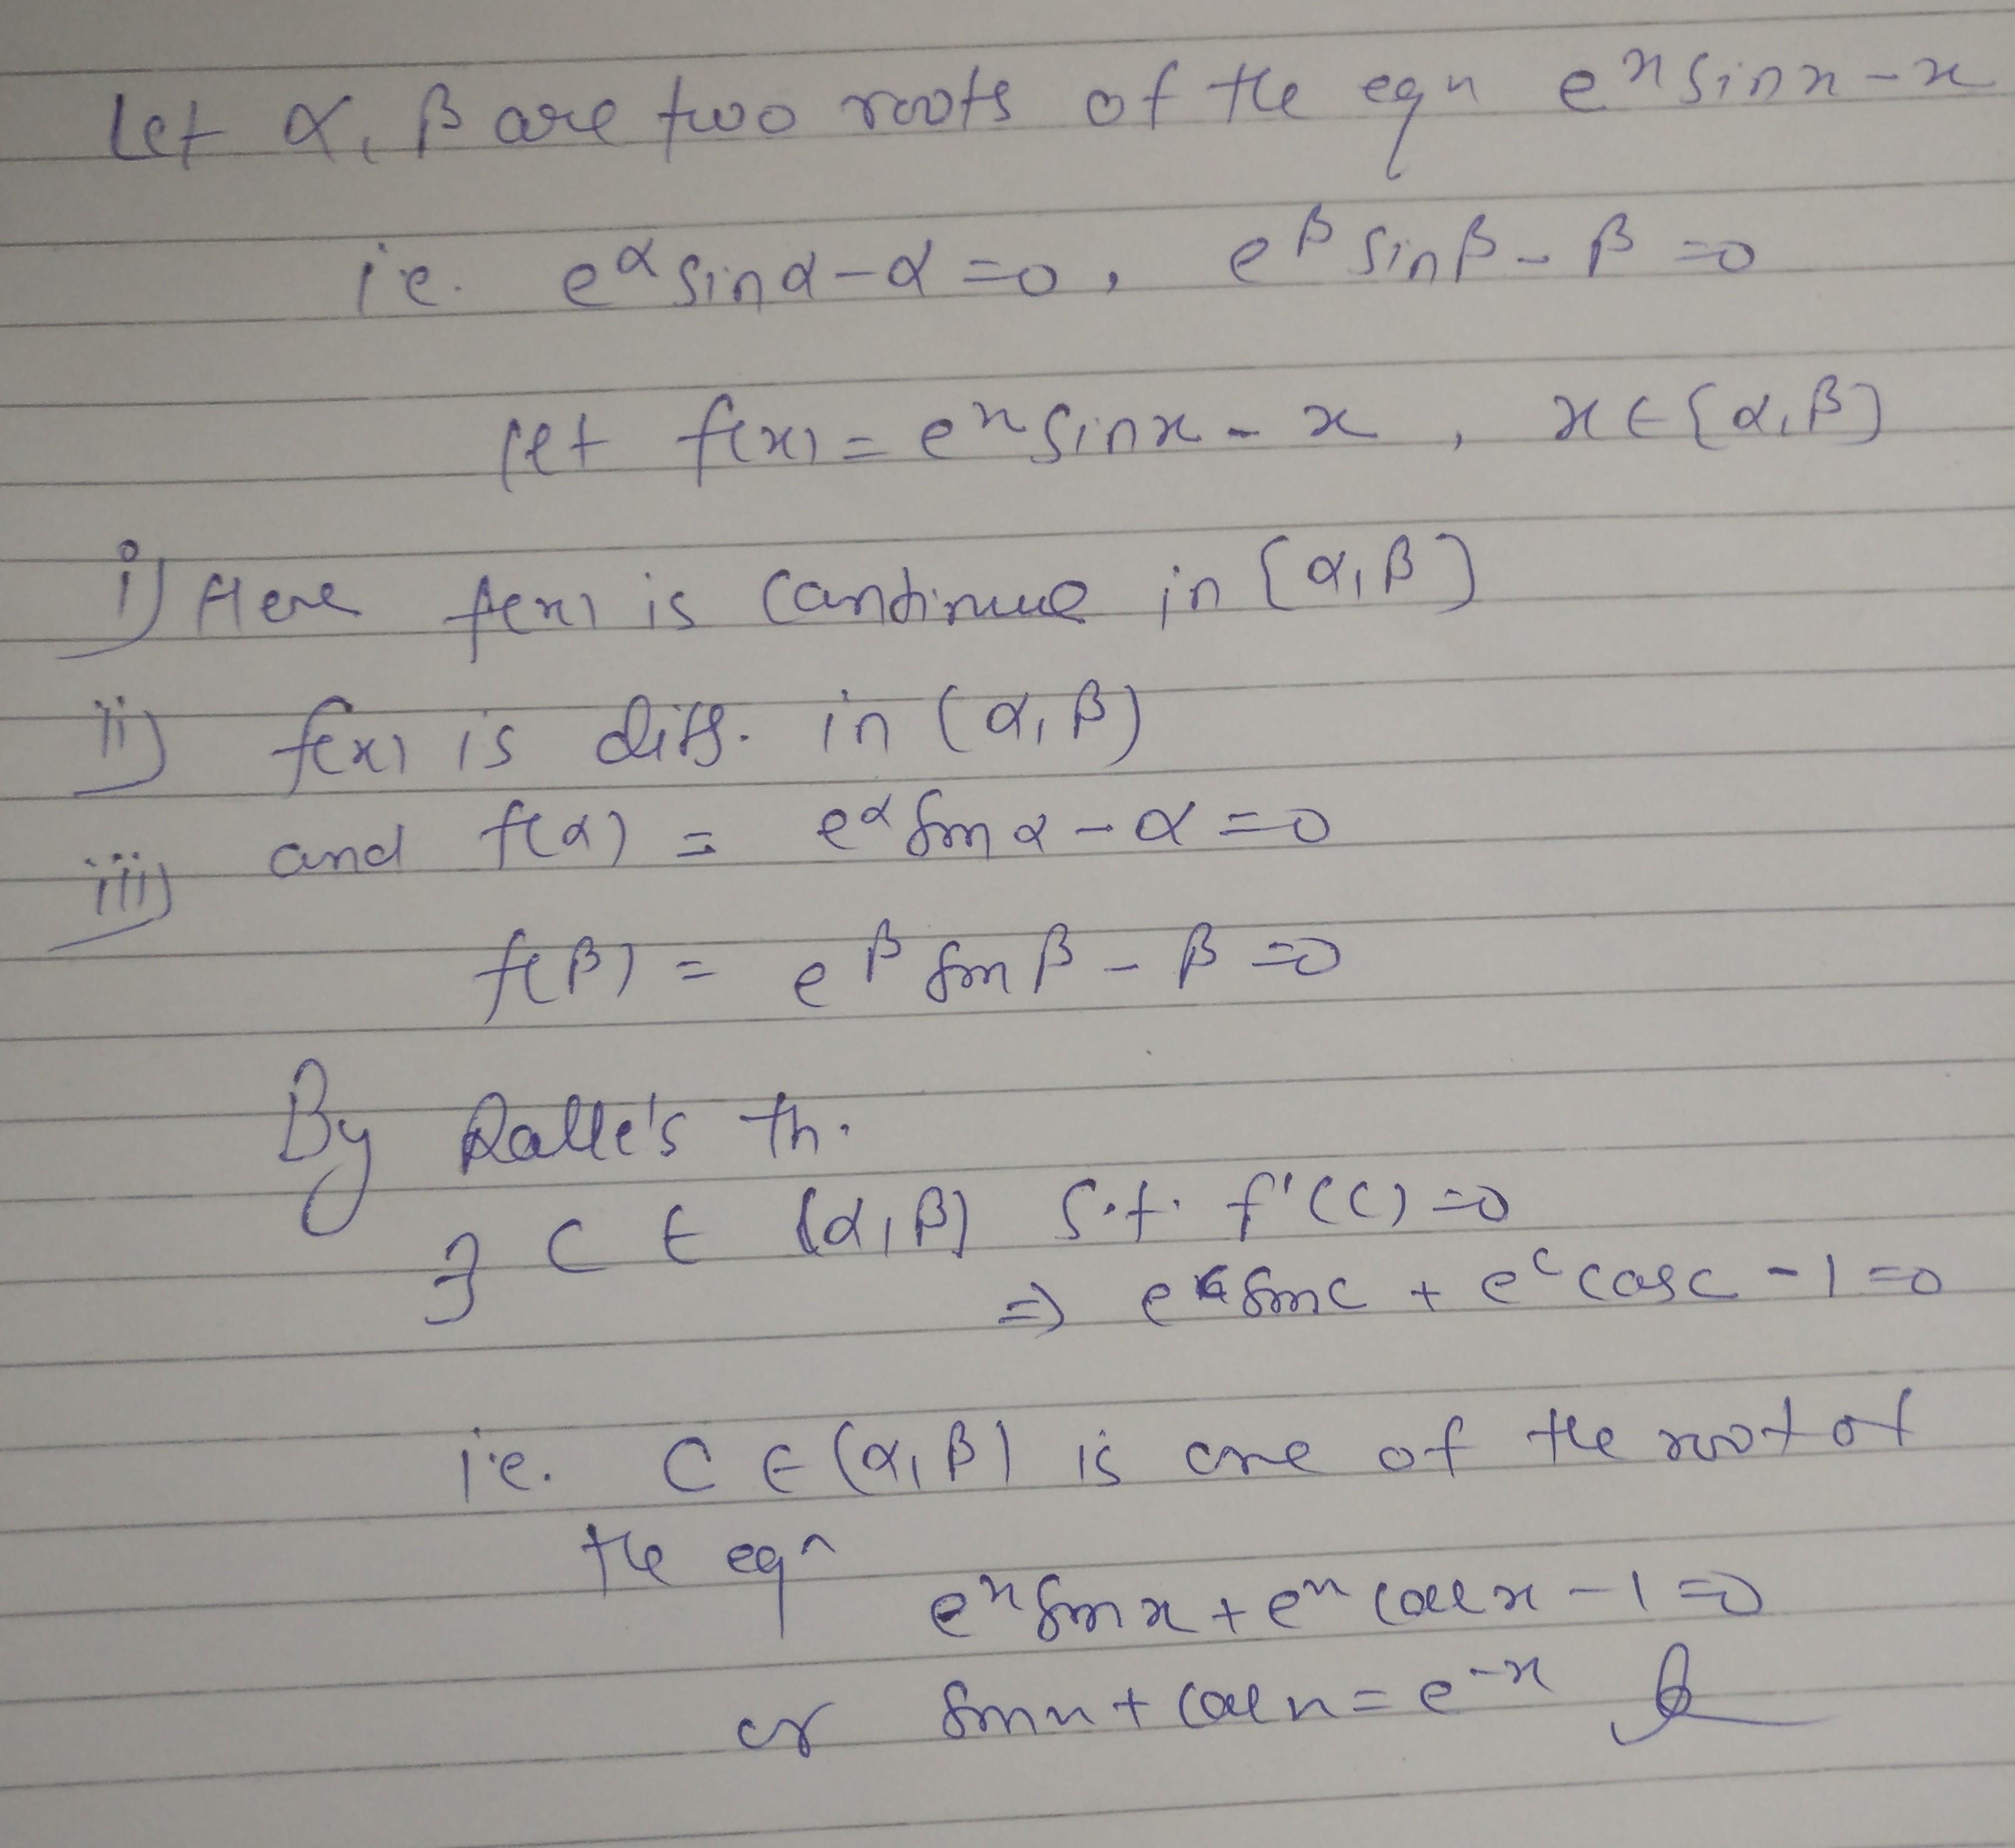 Let α, β are two roots of the eqn e^x sinx - x
i.e. e^α sinα - α = 0, e^β sinβ - β = 0
let f(x) = e^x sinx - x , x ∈ [α, β]
i) Here f(x) is continue in [α, β]
ii) f(x) is diff. in (α, β)
iii) and f(α) = e^α sin α - α = 0
f(β) = e^β sin β - β = 0
By Rolle's th.
∃ C ∈ (α, β) s.t. f'(c) = 0
⇒ e^c sinc + e^c cosc - 1 = 0
i.e. C ∈ (α, β) is one of the root of
the eqn
e^x sin x + e^x cos x - 1 = 0
or sinx + cosx = e^-x